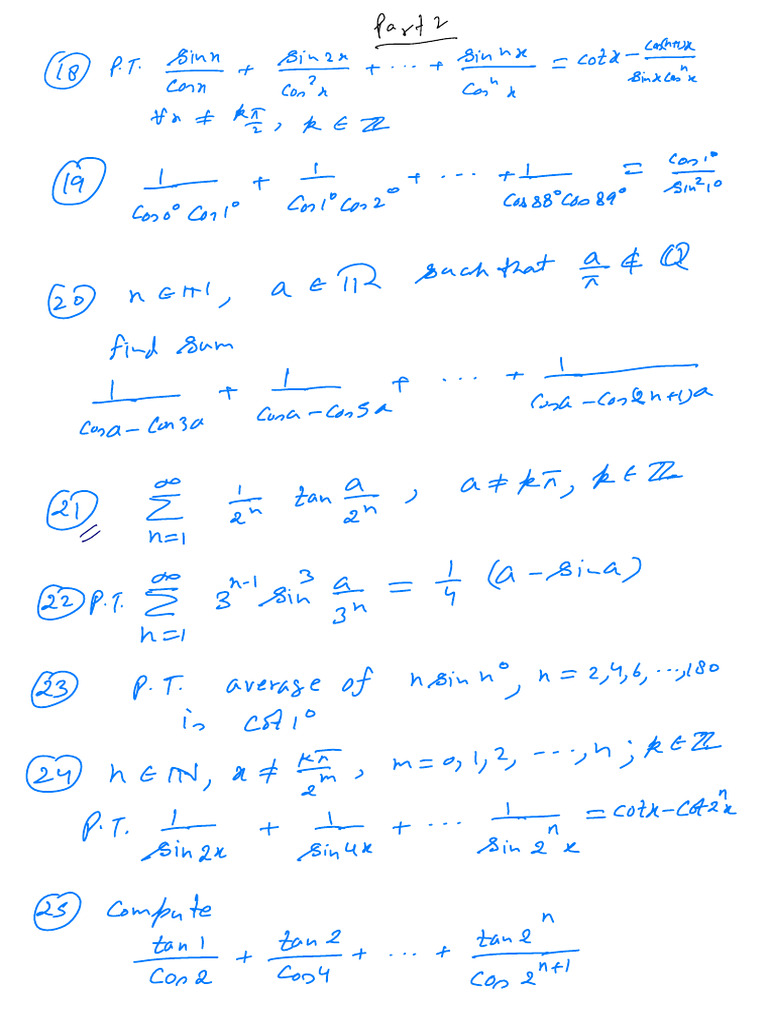 Part 2
(18) P.T. sin x / cos x + sin 2x / cos² x + ... + sin nx / cosⁿ x = cot x − cos(n+1)x / sin x cosⁿ x
∀x ≠ kπ/2, k ∈ ℤ
(19) 1 / cos 0° cos 1° + 1 / cos 1° cos 2° + ... + 1 / cos 88° cos 89° = cos 1° / sin² 1°
(20) n ∈ ℕ, a ∈ ℝ such that a/π ∉ ℚ
find sum
1 / cos a − cos 3a + 1 / cos a − cos 5a + ... + 1 / cos a − cos(2n+1)a
(21) ∑_{n=1}^{∞} 1/2ⁿ tan a/2ⁿ , a ≠ kπ, k ∈ ℤ
(22) P.T. ∑_{n=1}^{∞} 3ⁿ⁻¹ sin³ a/3ⁿ = 1/4 (a − sin a)
(23) P.T. average of n sin n°, n = 2,4,6, ...,180
is cot 1°
(24) n ∈ ℕ, x ≠ kπ/2ᵐ, m = 0,1,2, ..., n ; k ∈ ℤ
P.T. 1 / sin 2x + 1 / sin 4x + ... 1 / sin 2ⁿ x = cot x − cot 2ⁿ x
(25) compute
tan 1 / cos 2 + tan 2 / cos 4 + ... + tan 2ⁿ / cos 2ⁿ⁺¹